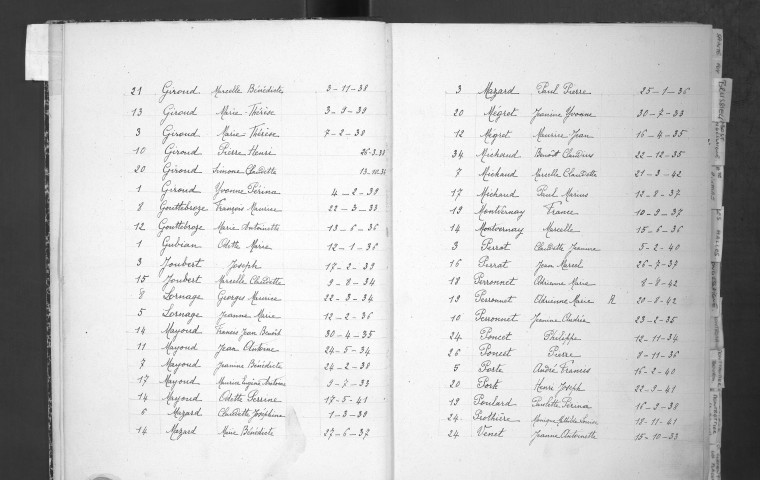 21 Giroud Marcelle Bénédicte 3-11-38
13 Giroud Marie-Thérèse 3-9-39
3 Giroud Marie-Thérèse 7-2-38
10 Giroud Pierre Henri 26-3-38
20 Giroud Simone Claudette 13-10-36
1 Giroud Yvonne Périna 4-2-39
8 Gouttebroze François Maurice 22-3-33
12 Gouttebroze Marie Antoinette 13-6-36
1 Gubian Odette Marie 12-1-36
3 Joubert Joseph 17-2-39
15 Joubert Marcelle Claudette 9-8-34
8 Lornage Georges Maurice 22-3-34
5 Lornage Jeanne Marie 12-2-36
14 Mayoud Francis Jean Benoît 30-4-35
11 Mayoud Jean Antoine 24-5-34
7 Mayoud Jeannine Bénédicte 24-2-38
17 Mayoud Maurice Eugène Antoine 9-7-33
14 Mayoud Odette Perrine 17-5-41
6 Mazard Claudette Joséphine 1-3-39
14 Mazard Marie Bénédicte 27-6-37
3 Mazard Paul Pierre 25-1-36
20 Mégret Jeanine Yvonne 30-7-33
12 Mégret Maurice Jean 16-4-35
34 Michaud Benoît Claudius 22-12-35
7 Michaud Marcelle Claudette 21-3-42
17 Michaud Paul Marius 12-8-37
19 Montvernay France 10-9-37
14 Montvernay Marcelle 15-6-36
3 Perrot Claudette Jeanne 5-2-40
16 Perrat Jean Marcel 26-7-37
18 Perronnet Adrienne Marie 8-8-42
19 Perronnet Adrienne Marie R 20-8-42
10 Perronnet Jeanine Andrée 23-2-35
24 Poncet Philippe 12-11-34
26 Poncet Pierre 8-11-36
5 Porte André Francis 16-2-40
20 Pork Henri Joseph 22-9-41
19 Poulard Paulette Périna 16-2-38
24 Prothière Monique Mathilde 18-11-41
24 Venet Jeanne Antoinette 15-10-33